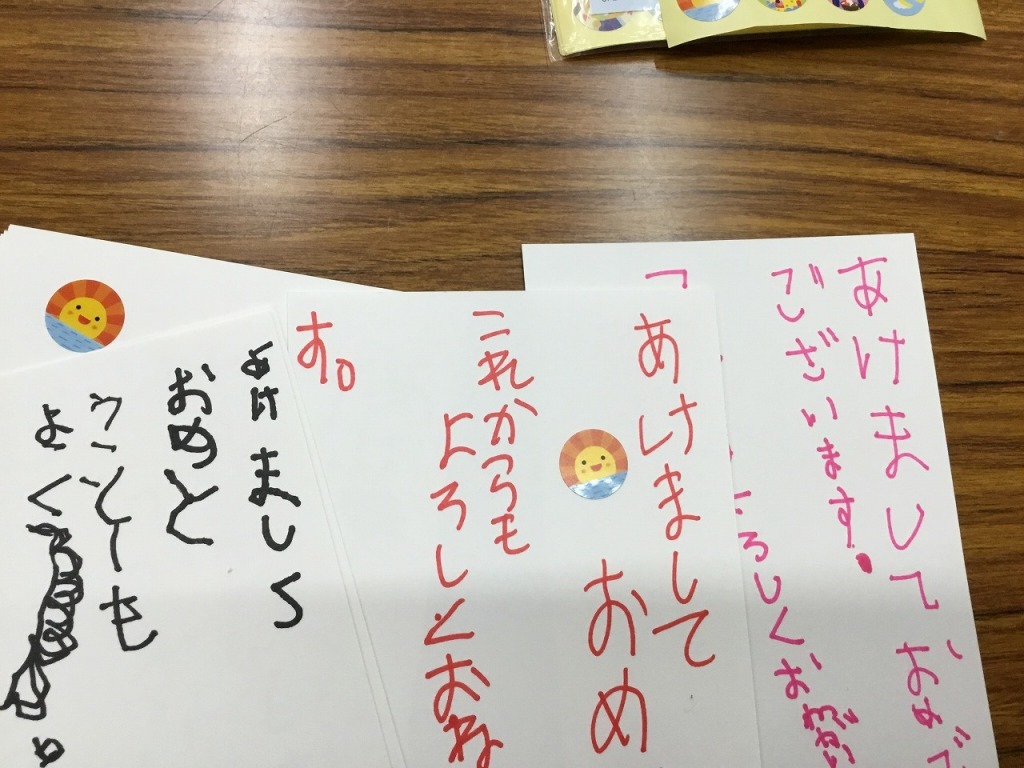 あけまして おめで
ございます。
ろしくお
あけまして
おめ
これからも
よろしくおね
す。
あけまして
おめと
ことしも
よ